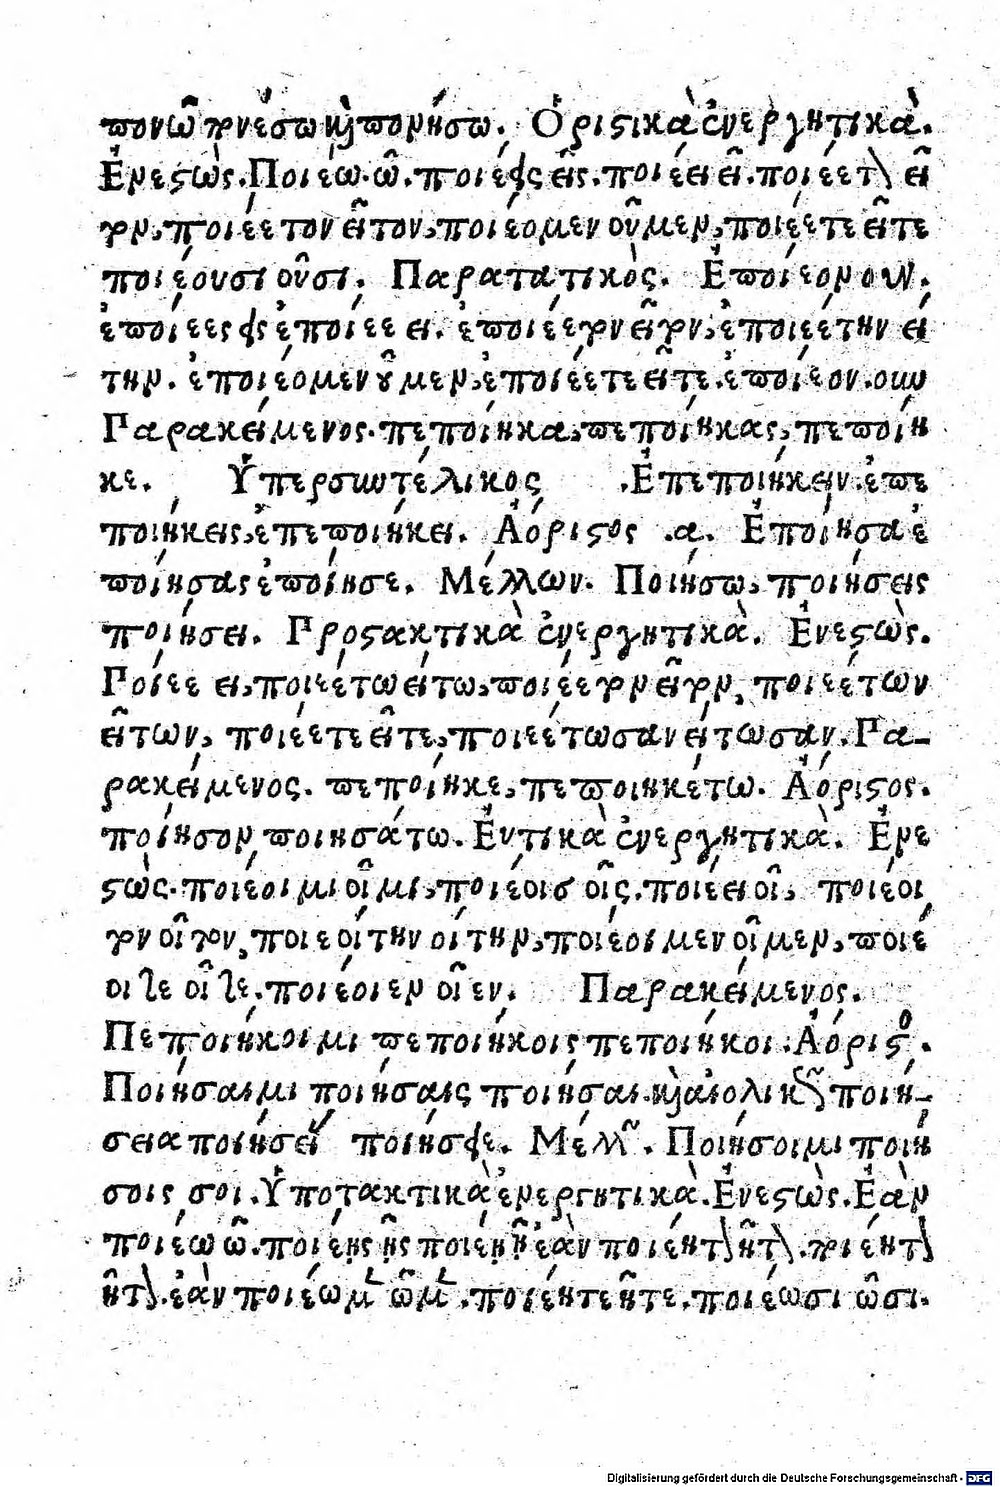 πονῶ πονέσω καὶ πονήσω. Ὁριστικὰ ἐνεργητικὰ.
Ἐνεστὼς. Ποιέω. ῶ. ποιέεις εῖς. ποιέει εῖ. ποιέετον εῖ
τον, ποιέετον εῖτον, ποιέομεν οῦμεν, ποιέετε εῖτε
ποιέουσι οῦσι. Παρατατικὸς. Ἐποίεον ουν.
ἐποίεες εις ἐποίεε ει. ἐποιέετον εῖτον, ἐποιεέτην εί
την. ἐποιέομεν οῦμεν, ἐποιέετε εῖτε. ἐποίεον. ουν
Παρακείμενος. πεποίηκα, πεποίηκας, πεποίη
κε. Ὑπερσυντέλικος .Ἐπεποιήκειν. ἐπε
ποιήκεις, ἐπεποιήκει. Ἀόριστος .α. Ἐποίησα ἐ
ποίησας ἐποίησε. Μέλλων. Ποιήσω, ποιήσεις
ποιήσει. Προστακτικὰ ἐνεργητικὰ. Ἐνεστὼς.
Ποίεε ει, ποιεέτω είτω, ποιέετον εῖτον, ποιεέτων
εῖτων, ποιέετε εῖτε, ποιεέτωσαν είτωσαν. Πα-
ρακείμενος. πεποίηκε, πεποιηκέτω. Ἀόριστος.
ποίησον ποιησάτω. Εὐκτικὰ ἐνεργητικὰ. Ἐνε
στὼς. ποιέοιμι οῖμι, ποιέοις οῖς. ποιέοι οῖ, ποιέοι
τον οῖτον, ποιεοίτην οίτην, ποιέοιμεν οῖμεν, ποιέ
οιτε οῖτε. ποιέοιεν οῖεν. Παρακείμενος.
Πεποιήκοιμι πεποιήκοις πεποιήκοι. Ἀόριστο.
Ποιήσαιμι ποιήσαις ποιήσαι. καὶ αἰολικῶς ποιή-
σεια ποιήσειας ποιήσειε. Μέλλων. Ποιήσοιμι ποιή
σοις σοι. Ὑποτακτικὰ ἐνεργητικὰ. Ἐνεστὼς. Ἐὰν
ποιέω ῶ. ποιέῃς ῇς ποιέῃ ῇ ἐὰν ποιέητον ῆτον. ποιέητον
ῆτον. ἐὰν ποιέωμεν ῶμεν. ποιέητε ῆτε. ποιέωσι ῶσι.
Digitalisierung gefördert durch die Deutsche Forschungsgemeinschaft - DFG